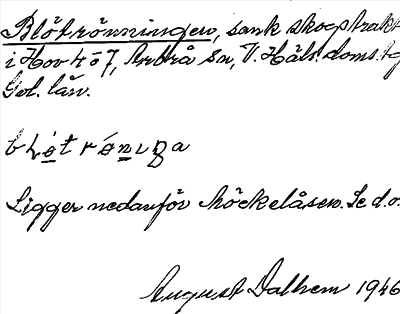 Blötrönningen, sank skogstrakt
i Hov 4 ö 7, Arbrå sn, V. Häls. doms.
Gvl. län.
blötrönıŋa
Ligger nedanför Möckelåsen. Se d.o.
August Dalhem 1946